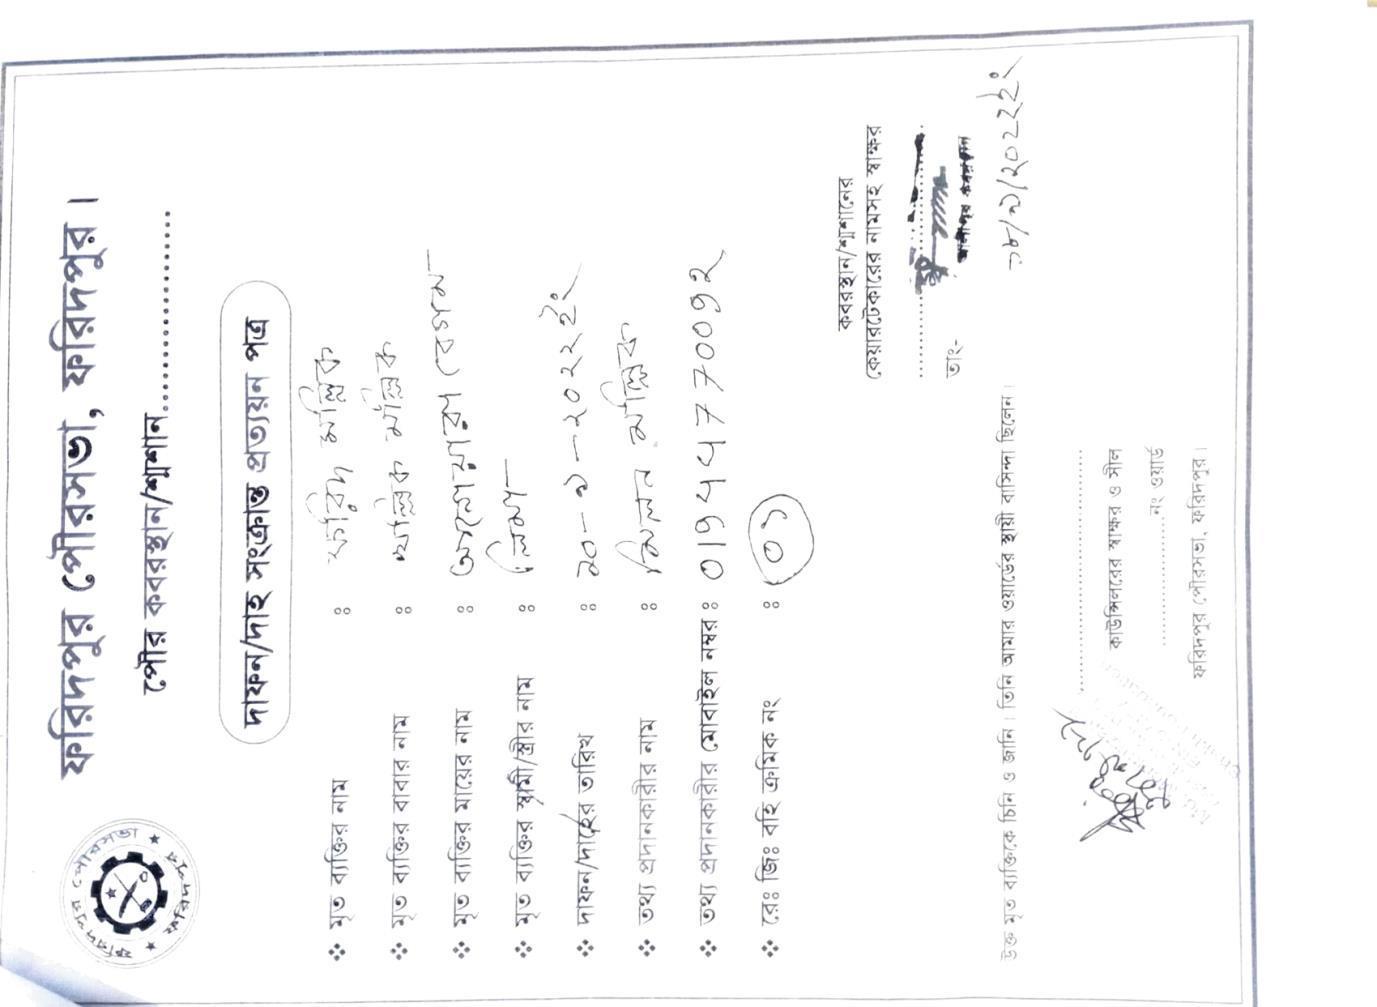 ফরিদপুর পৌরসভা, ফরিদপুর।
পৌর কবরস্থান/শ্মশান....................
ফরিদপুর পৌরসভা
ফরিদপুর
দাফন/দাহ সংক্রান্ত প্রত্যয়ন পত্র
❖ মৃত ব্যক্তির নাম : ফরিদ মল্লিক
❖ মৃত ব্যক্তির বাবার নাম : মল্লিক
❖ মৃত ব্যক্তির মায়ের নাম : আনোয়ারা বেগম
❖ মৃত ব্যক্তির স্বামী/স্ত্রীর নাম :
❖ দাফন/দাহের তারিখ : ১০-৯-২০২২ইং
❖ তথ্য প্রদানকারীর নাম : মিলন মল্লিক
❖ তথ্য প্রদানকারীর মোবাইল নম্বর :
❖ রেঃ জিঃ বহি ক্রমিক নং : ০১
কবরস্থান/শ্মশানের
কেয়ারটেকারের নামসহ স্বাক্ষর
তাং-
১৮/৯/২০২২ইং
উক্ত মৃত ব্যক্তিকে চিনি ও জানি। তিনি আমার ওয়ার্ডের স্থায়ী বাসিন্দা ছিলেন।
কাউন্সিলরের স্বাক্ষর ও সীল
....................নং ওয়ার্ড
ফরিদপুর পৌরসভা, ফরিদপুর।